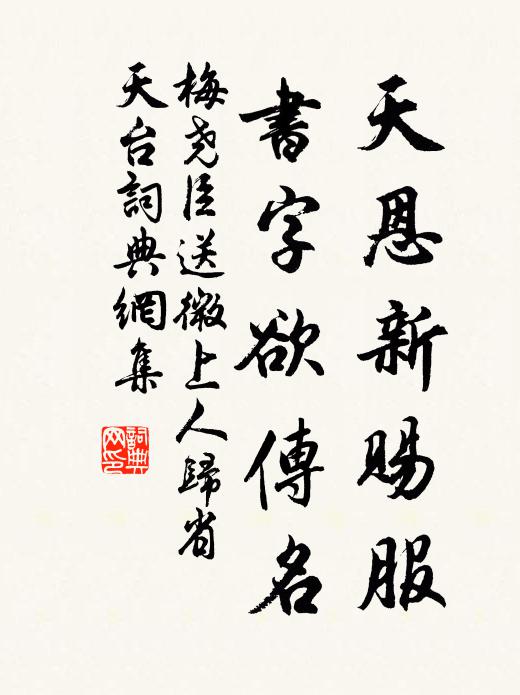 天恩新賜服
書字欲傳名
梅尧臣送微上人歸省
天台詞典網集
詞典
网印